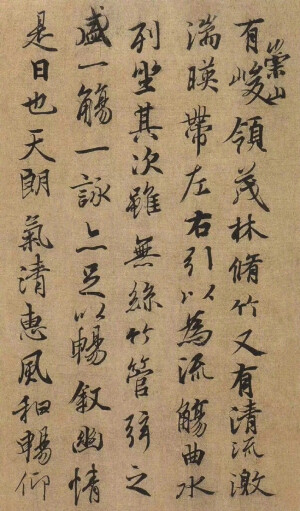 有崇山峻領茂林脩竹又有清流激
湍暎帶左右引以為流觴曲水
列坐其次雖無絲竹管弦之
盛一觴一詠亦足以暢叙幽情
是日也天朗氣清惠風和暢仰